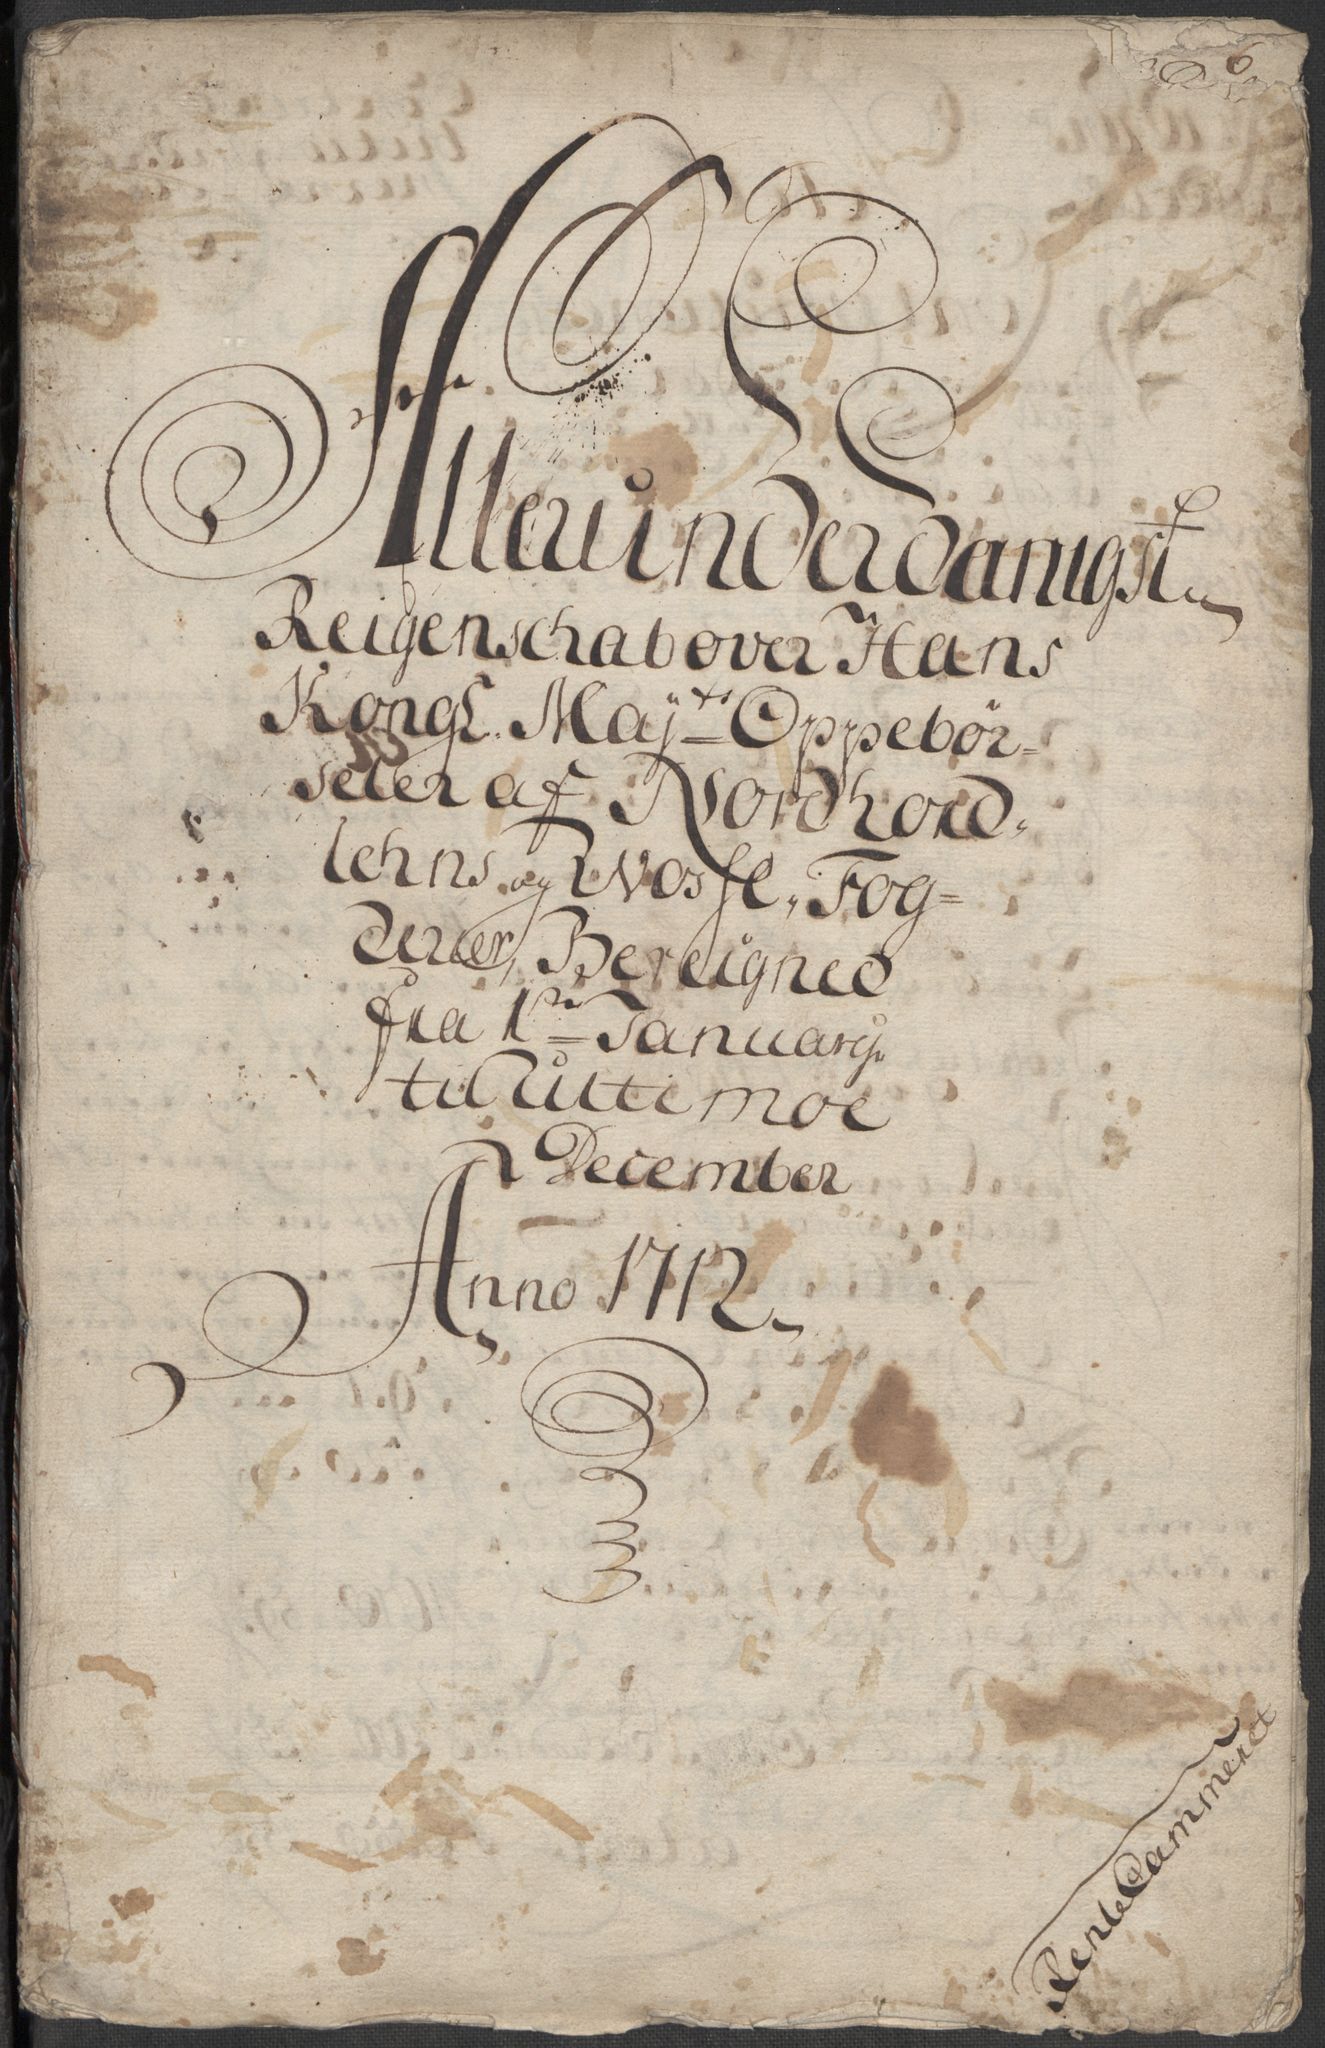 6
Allerunderdanigst
Reigenschab over Hans
Kongl. Maÿts Oppebør=
seler af Nordhord,
lehns og Wosse, Fog=
derier, Bereigned
fra 1ste January
til ultimoe
December
Anno 1712
RenteCammeret